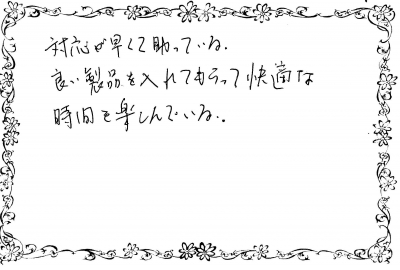 対応が早くて助っている.
良い製品を入れてもらって快適な
時間を楽しんでいる.